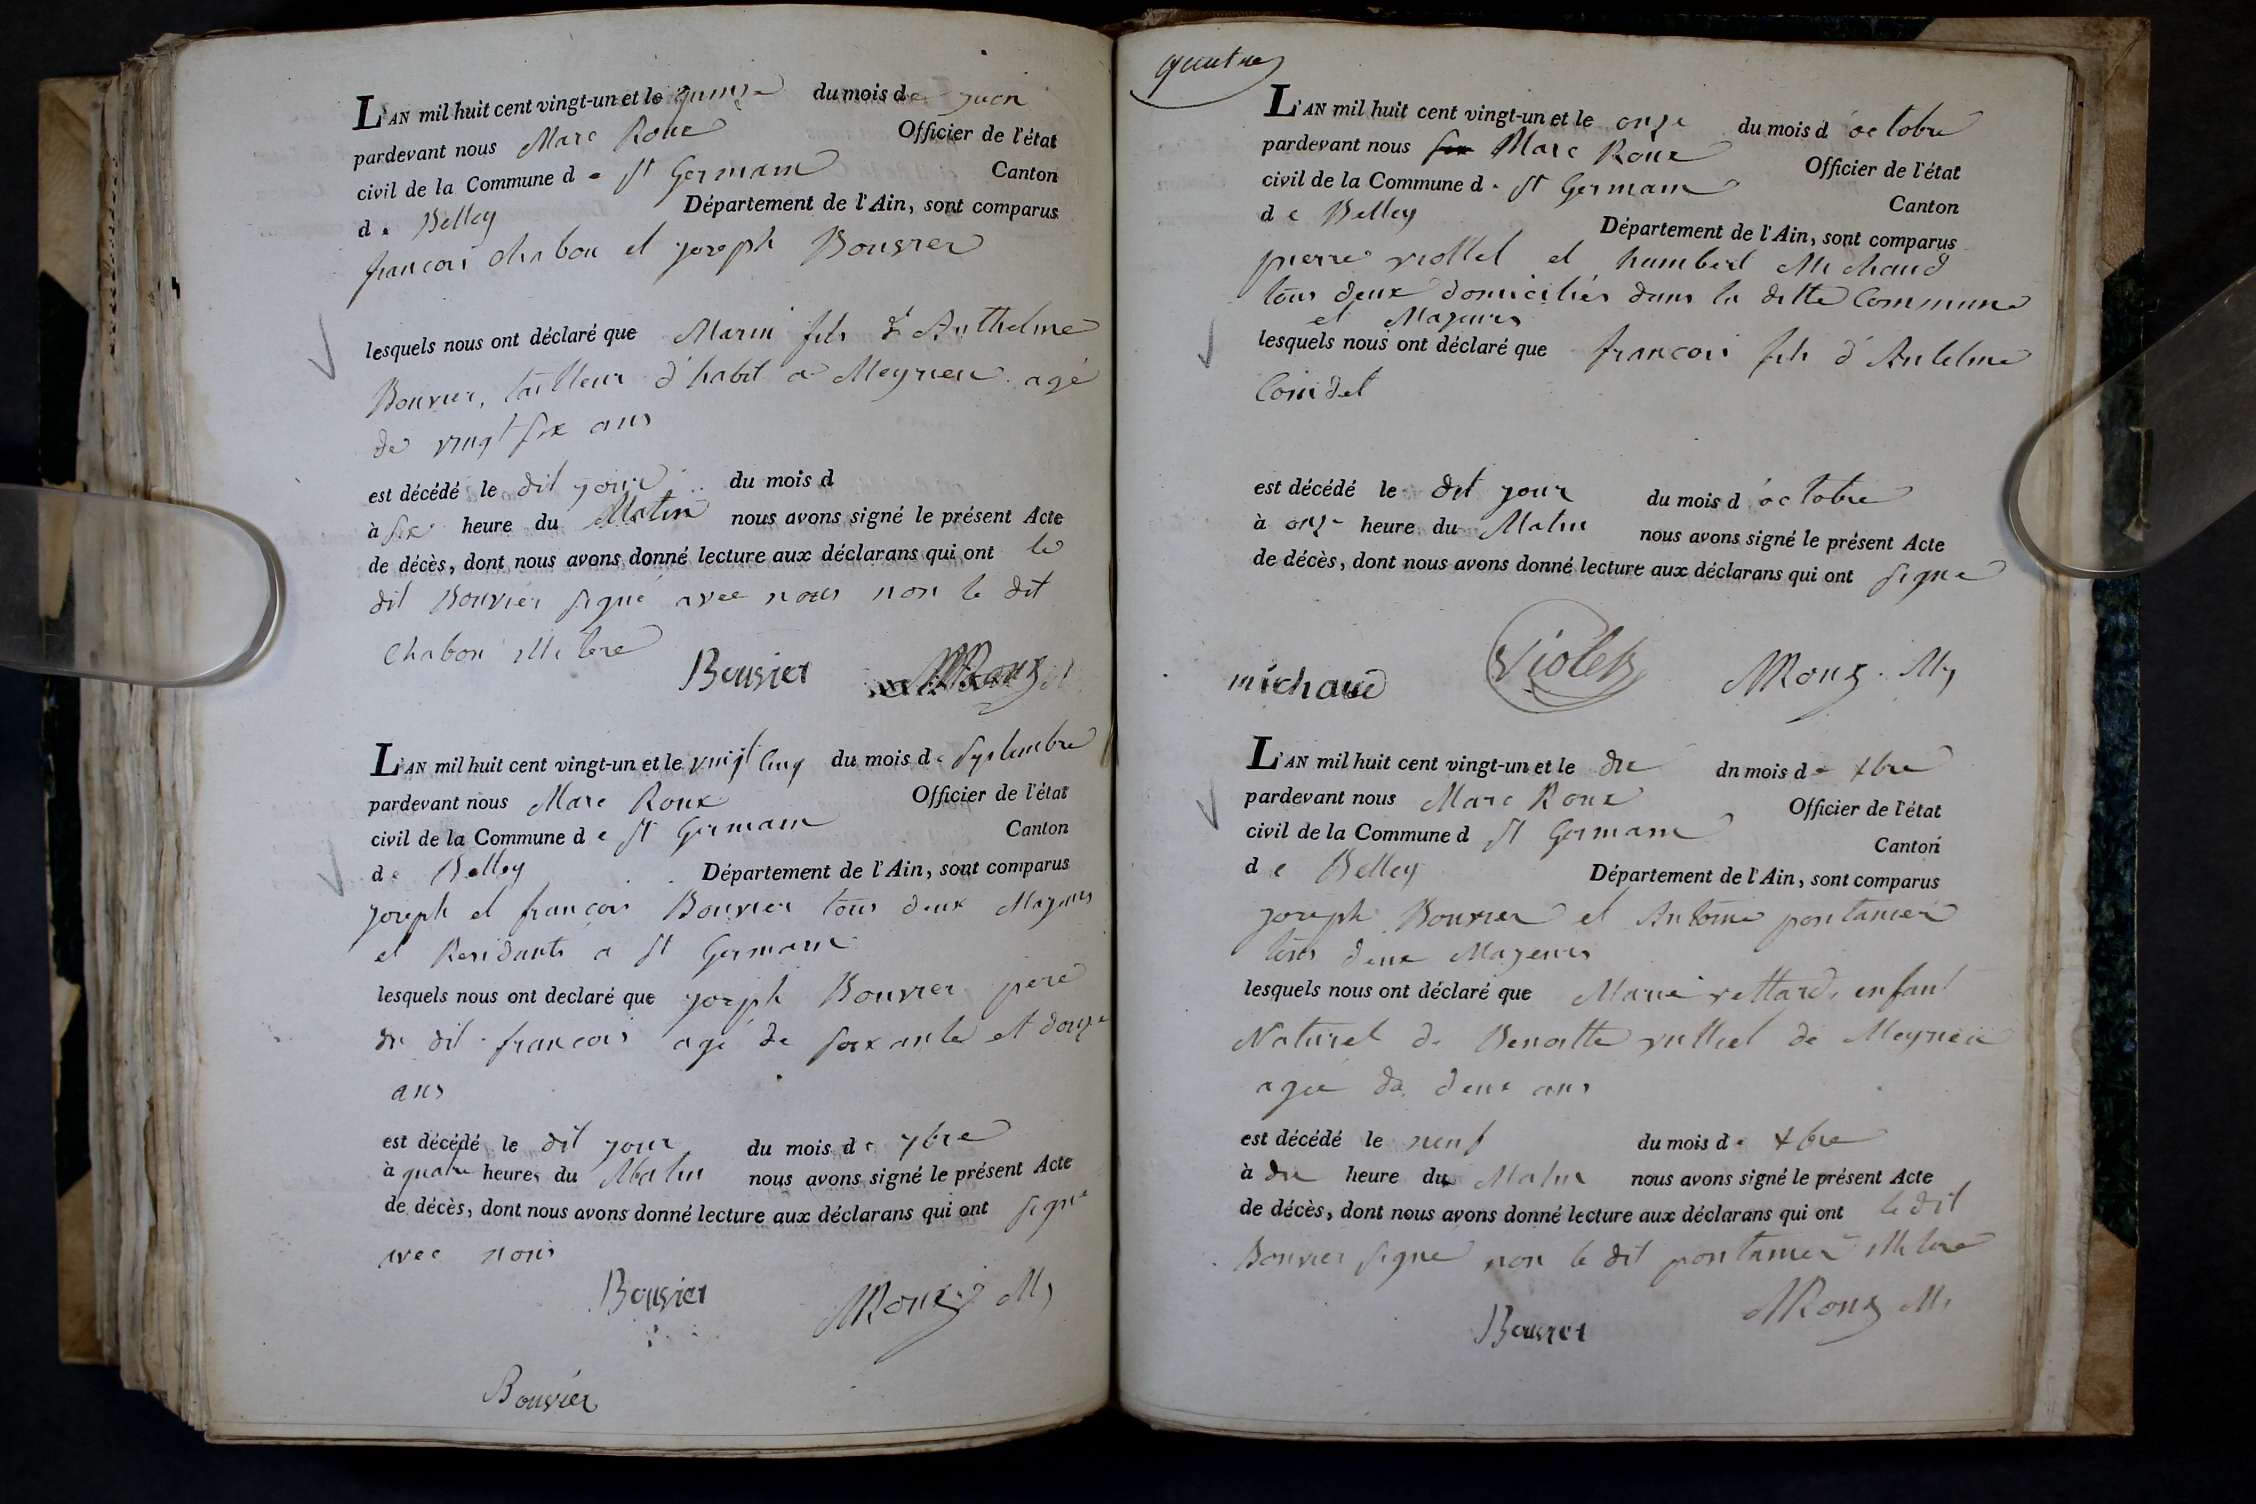 L'AN mil huit cent vingt-un et le quinze du mois de juin
pardevant nous Marc Roux Officier de l'état
civil de la Commune de St Germain Canton
de Belley Département de l'Ain, sont comparus
francois chabon et joseph Bouvier
lesquels nous ont déclaré que Marin fils d'Anthelme
Bouvier, tailleur d'habit a Meyrieu agé
de vingt six ans
est décédé le dit jour du mois d
à six heure du Matin nous avons signé le présent Acte
de décès, dont nous avons donné lecture aux déclarans qui ont le
dit Bouvier signé avec nous non le dit
chabon illitere
Bouvier MRoux
L'AN mil huit cent vingt-un et le vingt cinq du mois de septembre
pardevant nous Marc Roux Officier de l'état
civil de la Commune de St Germain Canton
de Belley Département de l'Ain, sont comparus
joseph et francois Bouvier tous deux Majeurs
et Residants a St Germain
lesquels nous ont declaré que joseph Bouvier pere
du dit francois agé de soixante et douze
ans
est décédé le dit jour du mois de 7bre
à quatre heures du Matin nous avons signé le présent Acte
de décès, dont nous avons donné lecture aux déclarans qui ont signé
avec nous
Bouvier MRoux M
Bouvier
quatre
L'AN mil huit cent vingt-un et le onze du mois d'octobre
pardevant nous Marc Roux Officier de l'état
civil de la Commune de St Germain Canton
de Belley Département de l'Ain, sont comparus
pierre viollet et humbert Michaud
tous deux domiciliés dans la ditte Commune
et Majeurs
lesquels nous ont déclaré que francois fils d'Antelme
Coindet
est décédé le dit jour du mois d'octobre
à onze heure du Matin nous avons signé le présent Acte
de décès, dont nous avons donné lecture aux déclarans qui ont signé
michaud Violet MRoux M
L'AN mil huit cent vingt-un et le dix dn mois de xbre
pardevant nous Marc Roux Officier de l'état
civil de la Commune d St Germain Canton
de Belley Département de l'Ain, sont comparus
joseph Bouvier et Antoine pontanier
tous deux Majeurs
lesquels nous ont déclaré que Marie vettard, enfant
Naturel de Benoitte vulliet de Meyrieu
agée de deux ans
est décédé le neuf du mois de xbre
à dix heure du Matin nous avons signé le présent Acte
de décès, dont nous avons donné lecture aux déclarans qui ont le dit
Bouvier signé non le dit pontanier illitere
Bouvier MRoux M